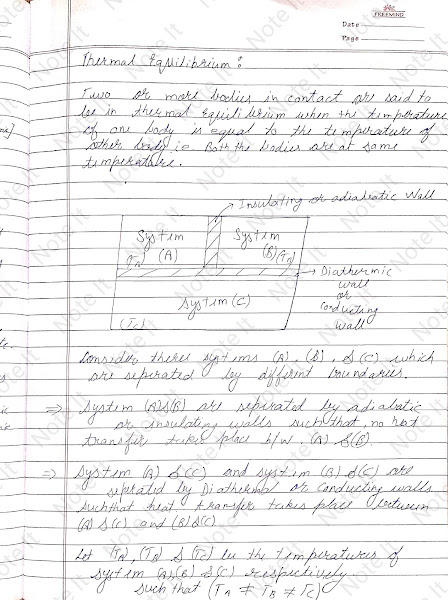 FREEMIND
Date
Page
Thermal Equilibrium :
Two or more bodies in contact are said to
be in thermal equilibrium when the temperature
of one body is equal to the temperature of
other body i.e Both the bodies are at same
temperature.
Insulating or adiabatic Wall
System
(A)
System
(B)
Diathermic
wall
or
conducting
wall
System (C)
(Tc)
Consider theres systems (A), (B), & (C) which
are seperated by different boundaries.
⇒ System (A)&(B) are seperated by adiabatic
or insulating walls such that, no heat
transfer takes place b/w. (A) &(B).
⇒ System (A) & (C) and system (B) &(C) are
seprated by Diathermal or conducting walls
suchthat heat transfer takes place between
(A) &(C) and (B)&(C)
Let (TA), (TB) & (Tc) be the temperatures of
system (A),(B) &(C) respectively
such that (TA ≠ TB ≠ Tc)
Note It